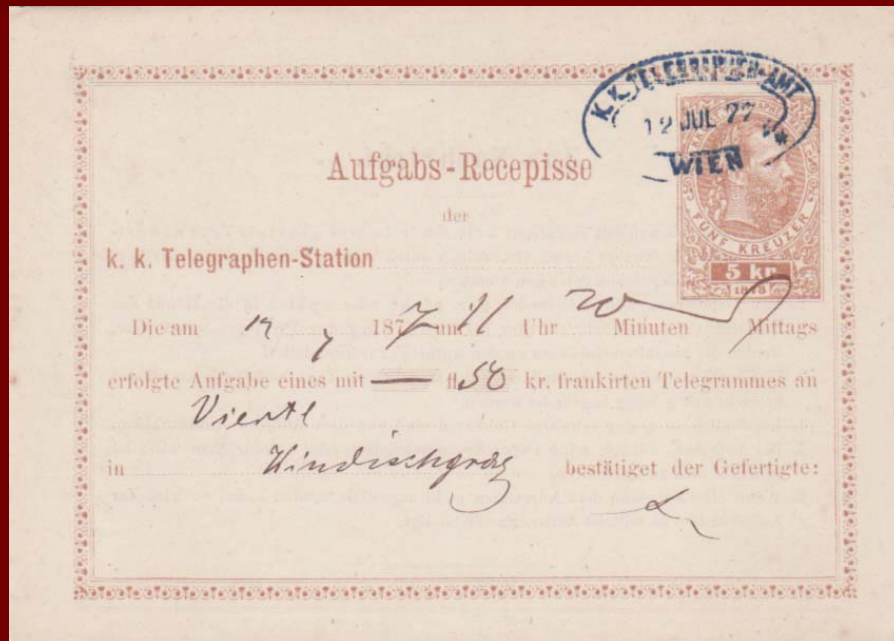 K. K. TELEGRAPHEN-AMT
12 JUL 77
WIEN
FÜNF KREUZER
5 kr
Aufgabs-Recepisse
der
k. k. Telegraphen-Station
Die am 12 7 1877 um 11 Uhr 20 Minuten Mittags
erfolgte Aufgabe eines mit — fl 50 kr. frankirten Telegrammes an
Viertl
in Windischgraz bestätiget der Gefertigte: